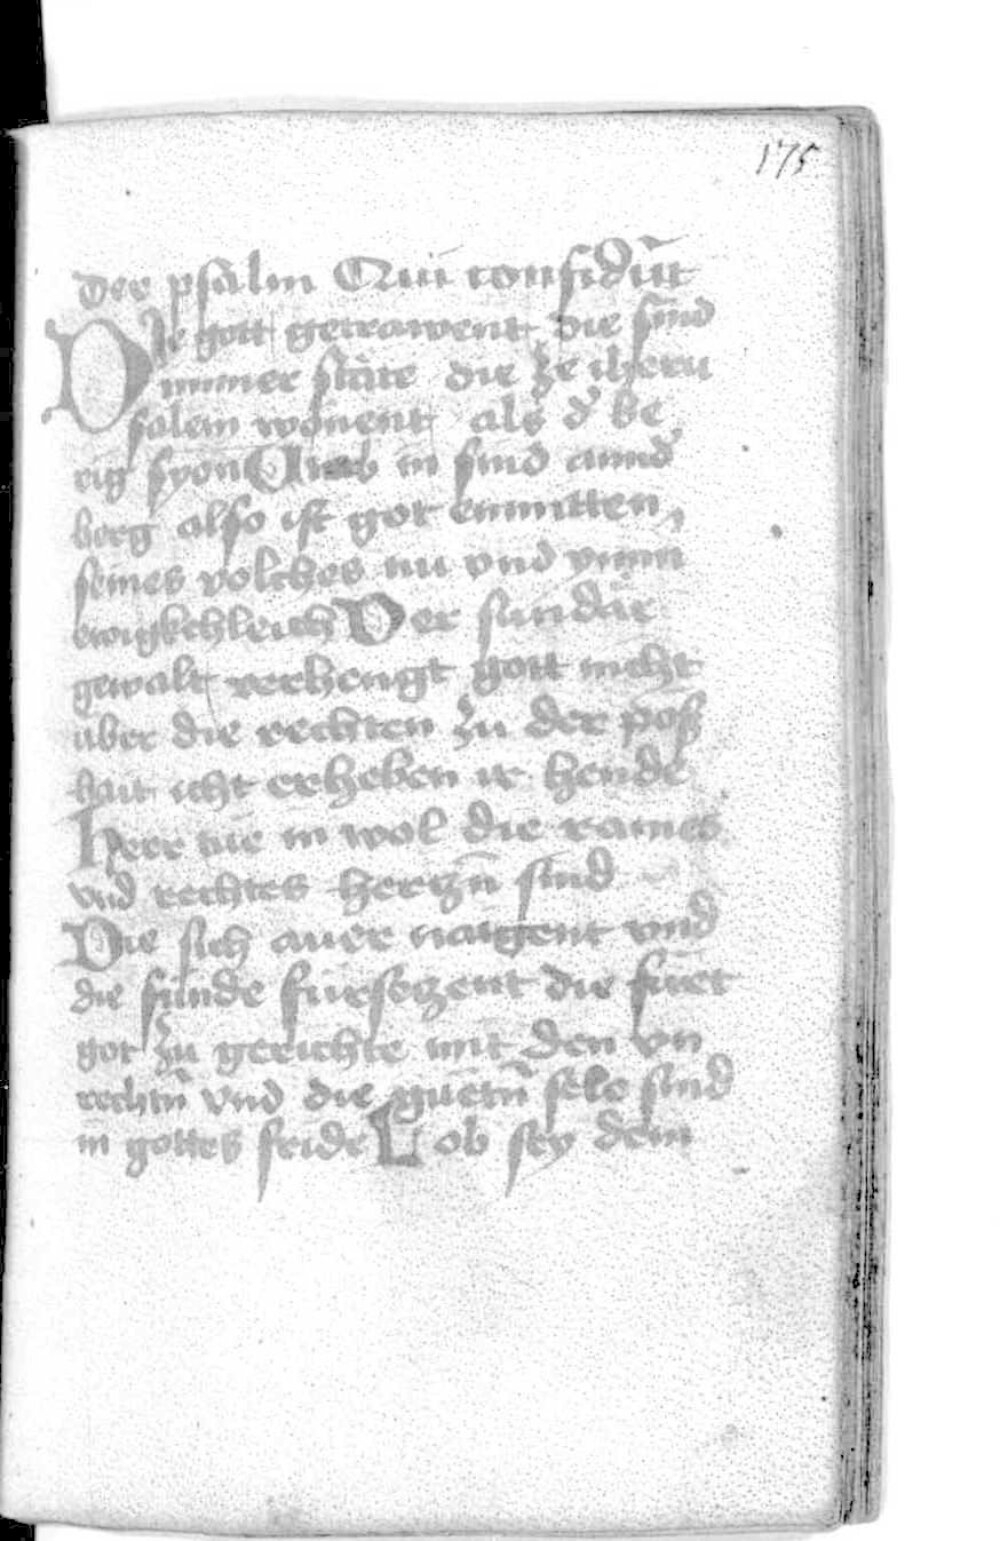 175
Der psalm Qui confidūt
Die gott getrawent die sind
immer stäte die ze iheru
salem wonent als d' be
rig syon Vmb in sind annd'
berg also ist got enmitten
seines volches nu vnd ymm
ewigkchleich Der sündär
gewalt verhengt gott nicht
über die rechten zu der pos
hait icht erheben ir hende
Herr tue in wol die raines
vnd rechtes hertzn̄ sind
Die sich auer naigent vnd
die sünde fürsetzent die füert
got zu gerichte mit den vn
rechtn̄ vnd die guetn̄ sele sind
in gottes fride Lob sey dem